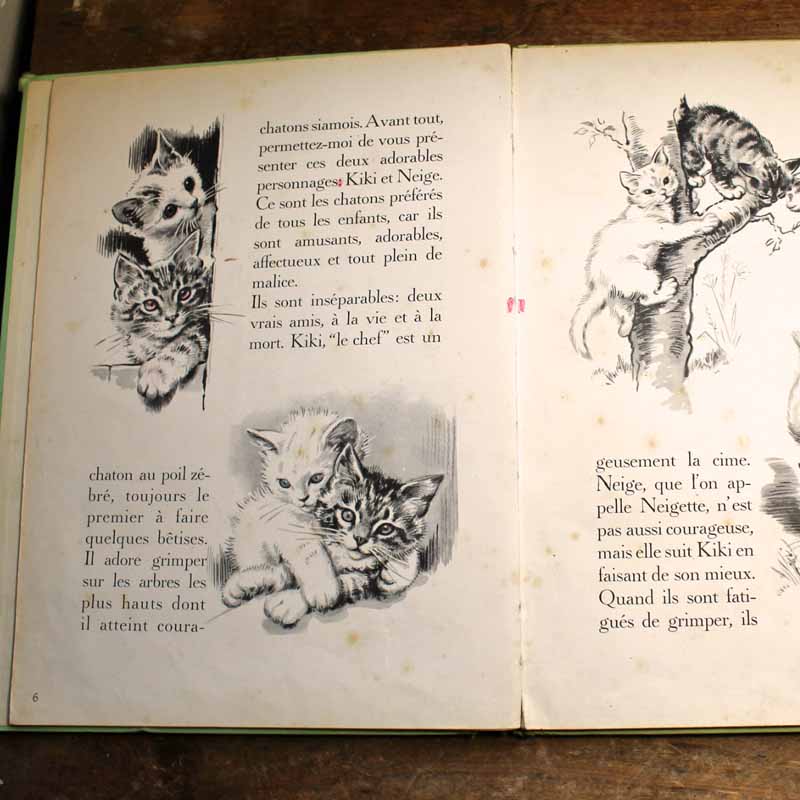 chatons siamois. Avant tout,
permettez-moi de vous pré-
senter ces deux adorables
personnages: Kiki et Neige.
Ce sont les chatons préférés
de tous les enfants, car ils
sont amusants, adorables,
affectueux et tout plein de
malice.
Ils sont inséparables: deux
vrais amis, à la vie et à la
mort. Kiki, "le chef" est un
chaton au poil zé-
bré, toujours le
premier à faire
quelques bêtises.
Il adore grimper
sur les arbres les
plus hauts dont
il atteint coura-
6
geusement la cime.
Neige, que l'on ap-
pelle Neigette, n'est
pas aussi courageuse,
mais elle suit Kiki en
faisant de son mieux.
Quand ils sont fati-
gués de grimper, ils